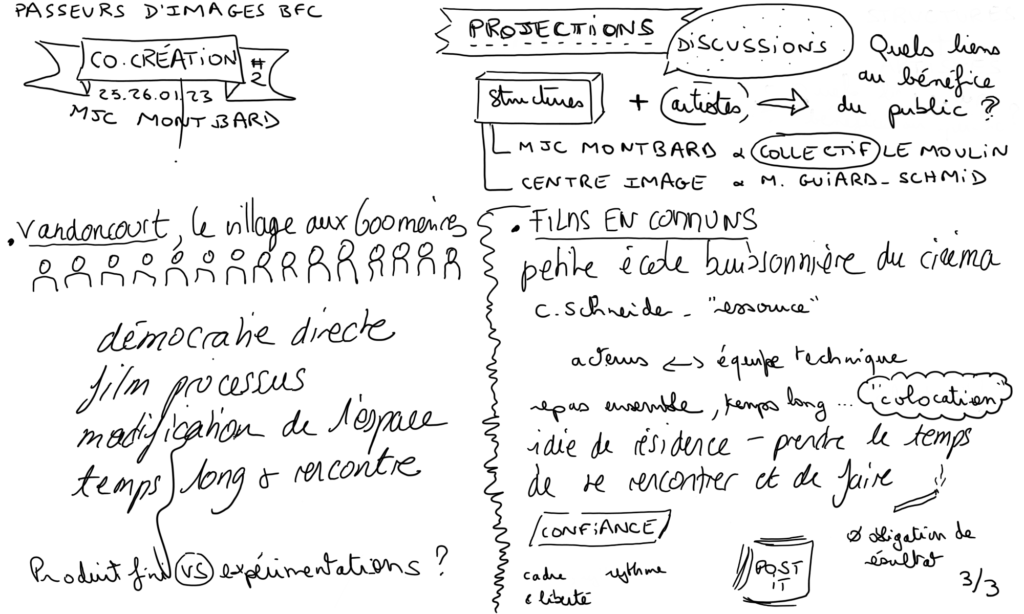 PASSEURS D'IMAGES BFC
CO.CRÉATION #2
25.26.01.23
MJC MONTBARD
PROJECTIONS
DISCUSSIONS
Quels liens
au bénéfice
du public ?
Structures + artistes
MJC MONTBARD & COLLECTIF LE MOULIN
CENTRE IMAGE & M. GUIARD-SCHMID
. Vandoncourt, le village aux 600 maires
démocratie directe
film processus
modification de l'espace
temps long & rencontre
Produit fini VS expérimentations ?
. FILMS EN COMMUNS
petite école buissonnière du cinéma
C. Schneider - "essource"
acteurs <-> équipe technique
repas ensemble, temps long ... "colocation"
idée de résidence - prendre le temps
de se rencontrer et de faire
CONFIANCE
cadre rythme
& liberté
POST
IT
Ø obligation de
résultat
3/3